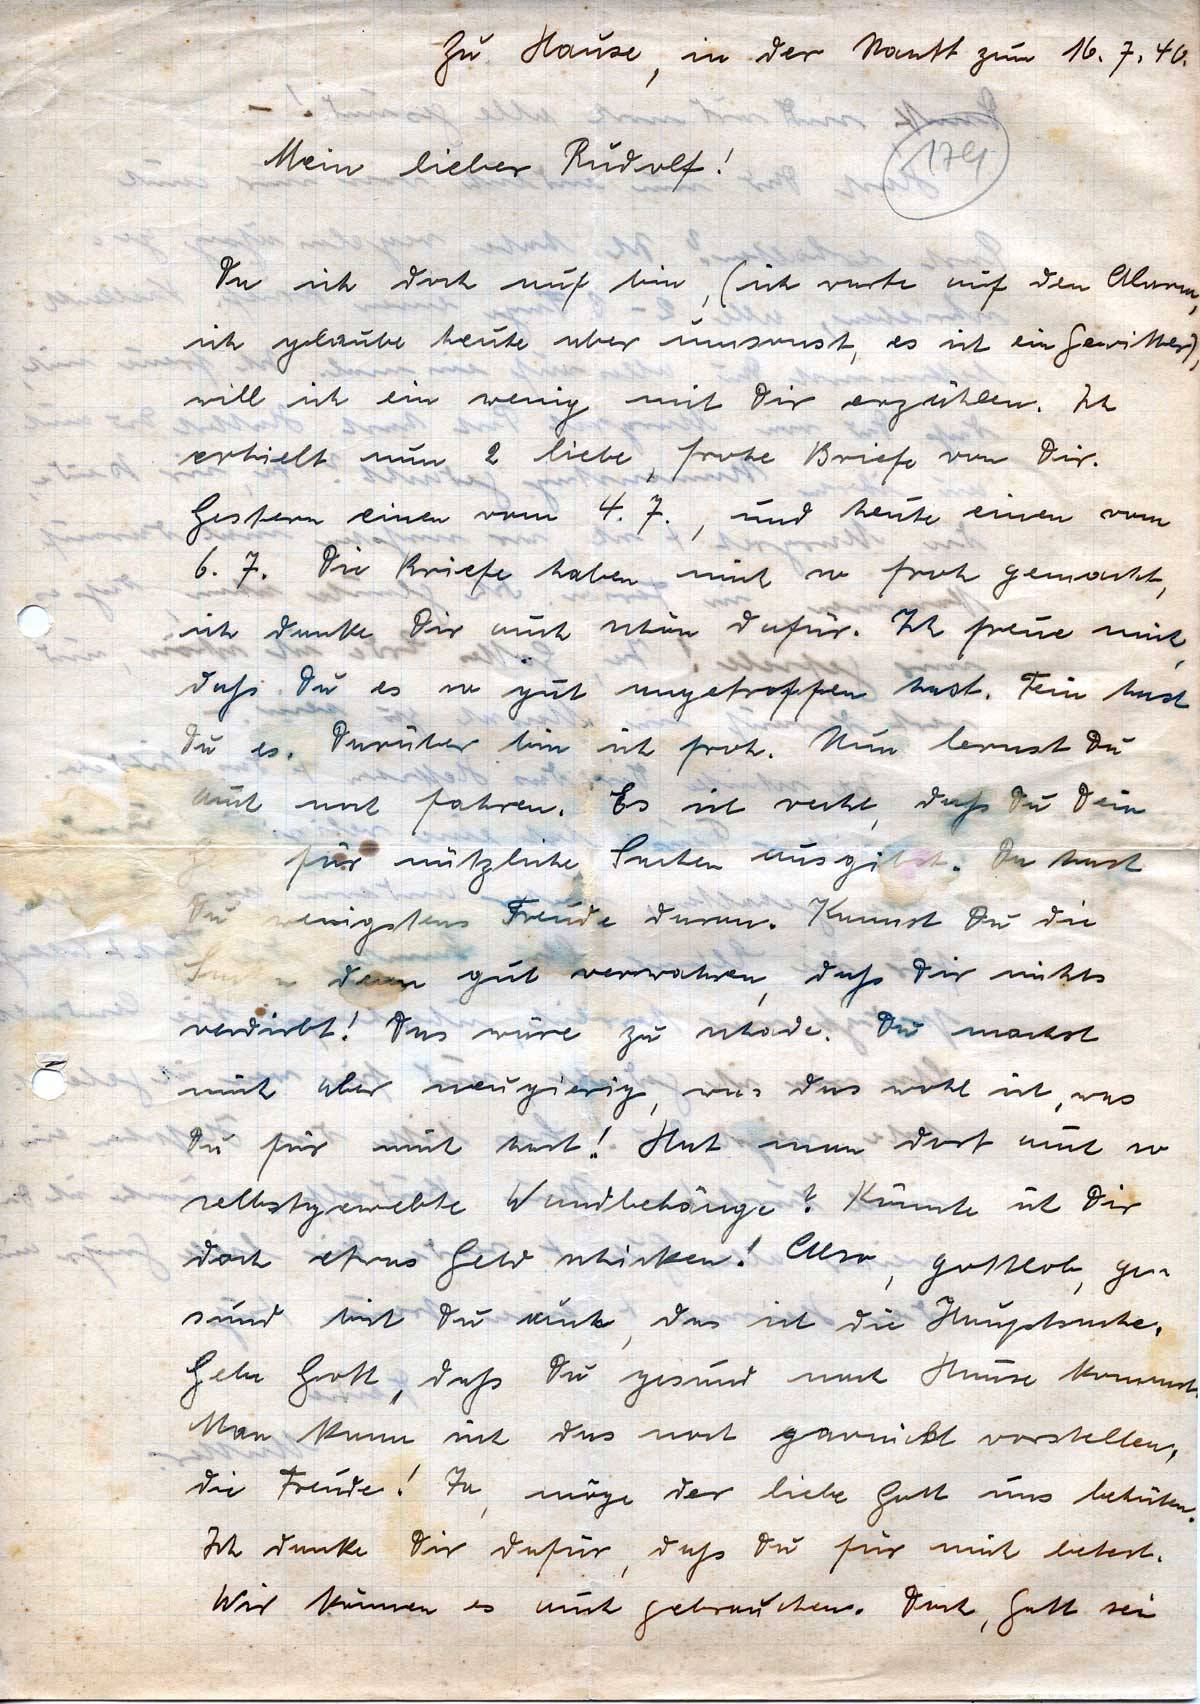 Zu Hause, in der Nacht zum 16. 7. 40.
179
Mein lieber Rudolf!
Da ich doch auf bin, (ich warte auf den Alarm,
ich glaube heute aber umsonst, es ist ein Gewitter),
will ich ein wenig mit Dir erzählen. Ich
erhielt nun 2 liebe, frohe Briefe von Dir.
Gestern einen vom 4. 7., und heute einen vom
6. 7. Die Briefe haben mich so froh gemacht,
ich danke Dir auch schön dafür. Ich freue mich,
daß Du es so gut angetroffen hast. Fein hast
Du es. Darüber bin ich froh. Nun lernst Du
auch noch fahren. Es ist recht, daß Du Dein
für nützliche Sachen ausgibst. Da hast
Du wenigstens Freude daran. Kannst Du die
Sachen denn gut verwahren, daß Dir nichts
verdirbt! Das wäre zu schade. Du machst
mich aber neugierig, was das wohl ist, was
Du für mich hast! Hat man dort auch so
selbstgewebte Wandbehänge? Könnte ich Dir
doch etwas Geld schicken! Also, gottlob, ge-
sund bist Du auch, das ist die Hauptsache.
Gebe Gott, daß Du gesund nach Hause kommst.
Man kann sich das noch garnicht vorstellen,
die Freude! Ja, möge der liebe Gott uns behüten.
Ich danke Dir dafür, daß Du für mich betest.
Wir können es auch gebrauchen. Doch, Gott sei